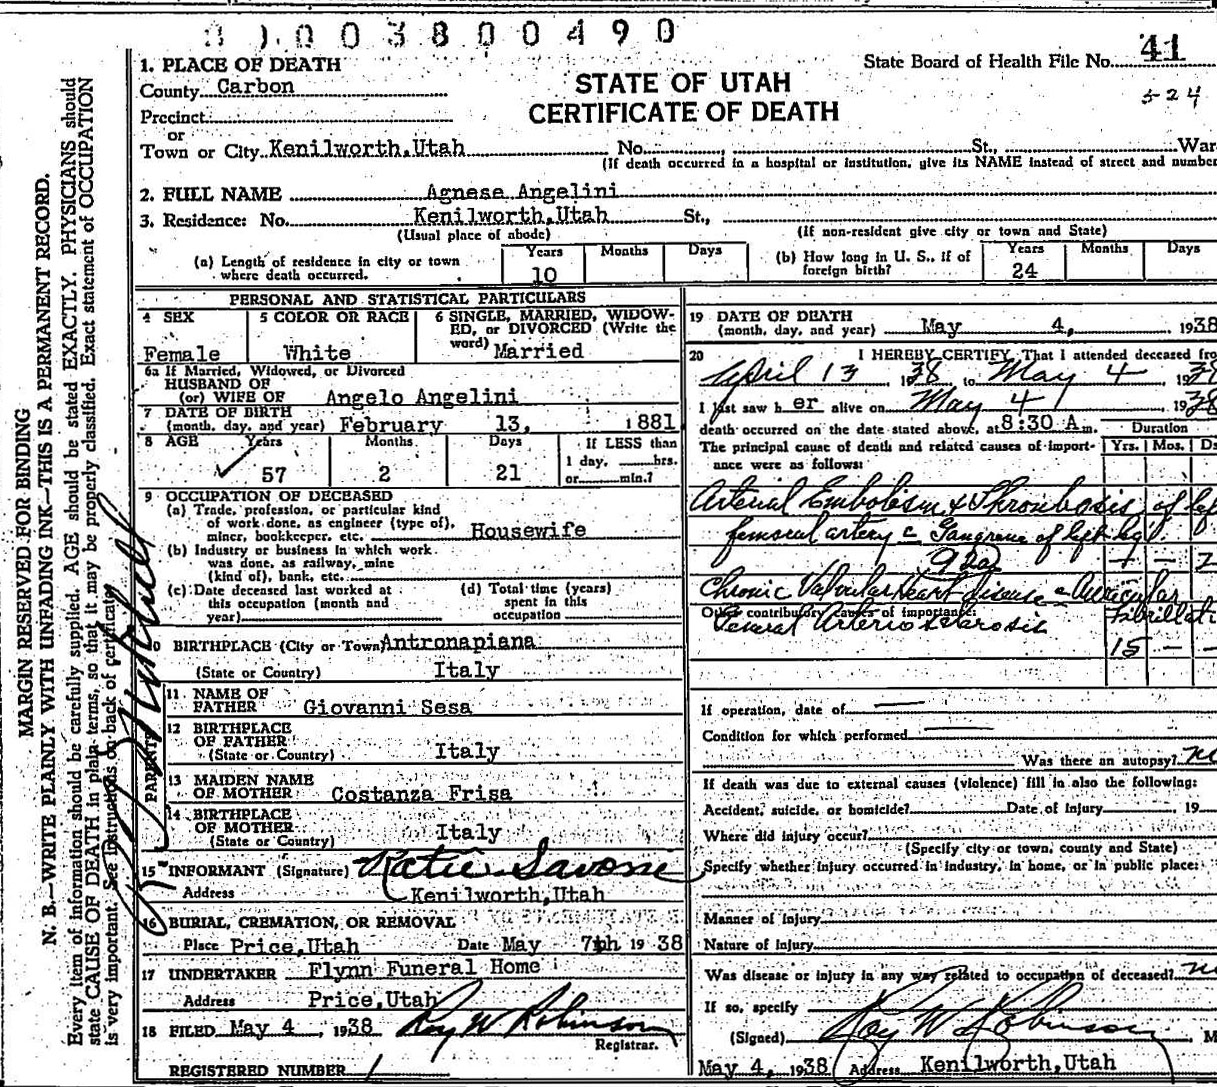 0003800490
State Board of Health File No. 41
524
STATE OF UTAH
CERTIFICATE OF DEATH
1. PLACE OF DEATH
County Carbon
Precinct
or
Town or City Kenilworth, Utah No. St., War
(If death occurred in a hospital or institution, give its NAME instead of street and number
2. FULL NAME Agnese Angelini
3. Residence: No. Kenilworth, Utah St.,
(Usual place of abode) (If non-resident give city or town and State)
(a) Length of residence in city or town where death occurred. Years 10 Months Days
(b) How long in U. S., if of foreign birth? Years 24 Months Days
PERSONAL AND STATISTICAL PARTICULARS
4 SEX Female
5 COLOR OR RACE White
6 SINGLE, MARRIED, WIDOWED, or DIVORCED (Write the word) Married
6a If Married, Widowed, or Divorced
HUSBAND OF
(or) WIFE OF Angelo Angelini
7 DATE OF BIRTH
(month, day, and year) February 13, 1881
8 AGE Years 57 Months 2 Days 21 If LESS than 1 day, hrs. or min.?
9 OCCUPATION OF DECEASED
(a) Trade, profession, or particular kind
of work done, as engineer (type of),
miner, bookkeeper, etc. Housewife
(b) Industry or business in which work
was done, as railway, mine
(kind of), bank, etc.
(c) Date deceased last worked at
this occupation (month and
year)
(d) Total time (years)
spent in this
occupation
10 BIRTHPLACE (City or Town) Antronapiana
(State or Country) Italy
PARENTS
11 NAME OF
FATHER Giovanni Sesa
12 BIRTHPLACE
OF FATHER
(State or Country) Italy
13 MAIDEN NAME
OF MOTHER Costanza Frisa
14 BIRTHPLACE
OF MOTHER
(State or Country) Italy
15 INFORMANT (Signature) Katie Savone
Address Kenilworth, Utah
16 BURIAL, CREMATION, OR REMOVAL
Place Price, Utah Date May 7th 1938
17 UNDERTAKER Flynn Funeral Home
Address Price, Utah
18 FILED May 4, 1938 Roy W Robinson
Registrar.
REGISTERED NUMBER 1
19 DATE OF DEATH
(month, day, and year) May 4, 1938
20 I HEREBY CERTIFY, That I attended deceased fro
April 13, 1938 to May 4, 1938
I last saw her alive on May 4, 1938
death occurred on the date stated above, at 8:30 A.m.
The principal cause of death and related causes of importance were as follows:
Duration
Yrs. Mos. Ds
Arterial Embolism & Thrombosis of lef
femoral artery c Gangrene of left leg.
92a
Chronic Valvular Heart disease c Auricular
Fibrillati
Other contributory causes of importance:
General Arteriosclerosis
15 - -
If operation, date of
Condition for which performed
Was there an autopsy? no
If death was due to external causes (violence) fill in also the following:
Accident, suicide, or homicide? Date of Injury , 19
Where did injury occur?
(Specify city or town, county and State)
Specify whether injury occurred in industry, in home, or in public place:
Manner of Injury
Nature of Injury
Was disease or injury in any way related to occupation of deceased? no
If so, specify
(Signed) Roy W Robinson M
May 4, 1938 Address Kenilworth, Utah
MARGIN RESERVED FOR BINDING
N. B.—WRITE PLAINLY WITH UNFADING INK—THIS IS A PERMANENT RECORD.
Every item of information should be carefully supplied. AGE should be stated EXACTLY. PHYSICIANS should
state CAUSE OF DEATH in plain terms, so that it may be properly classified. Exact statement of OCCUPATION
is very important. See instructions on back of certificate.